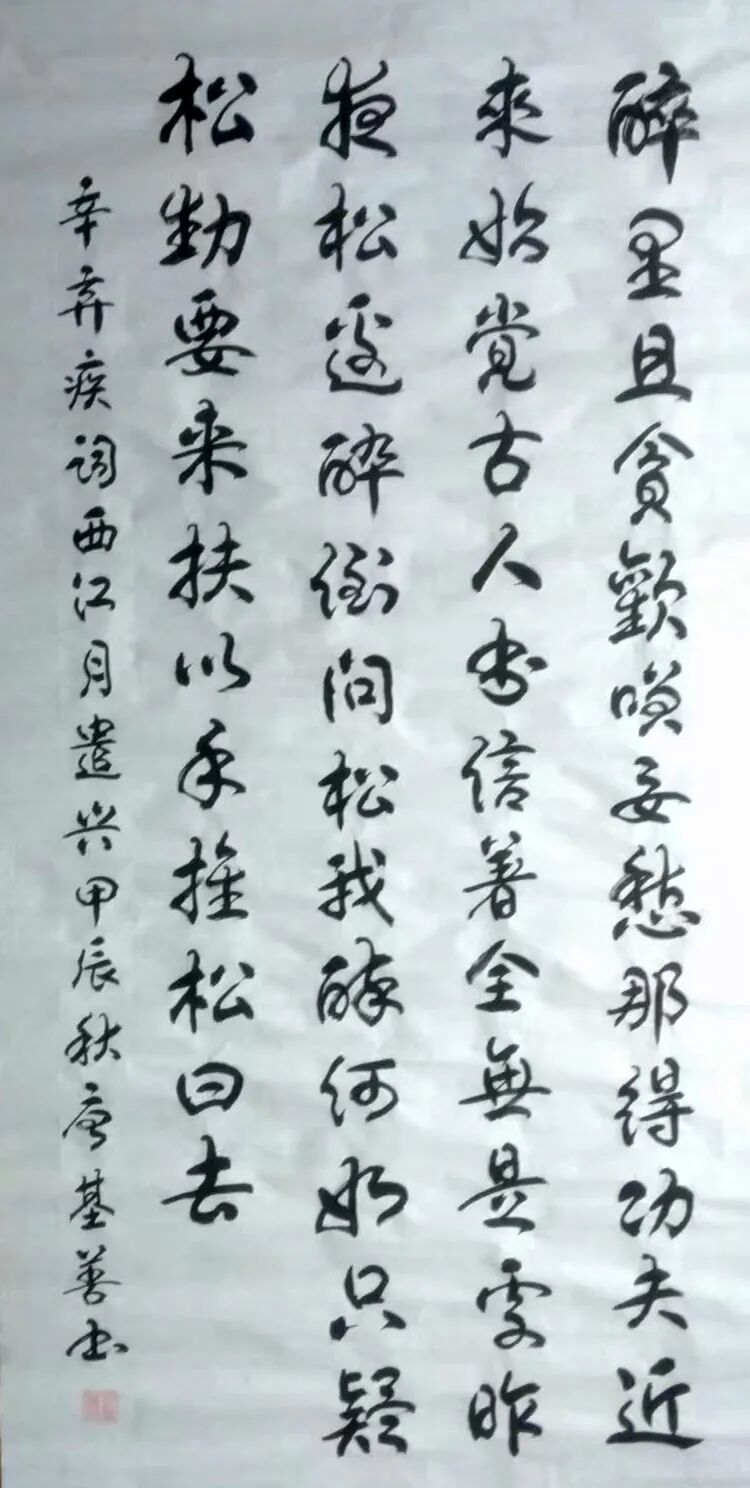 醉里且貪歡咲要愁那得功夫近
來始觉古人書信著全無是處昨
夜松邊醉倒問松我醉何如只疑
松動要来扶以手推松曰去
辛弃疾词西江月遣兴甲辰秋唐基善书